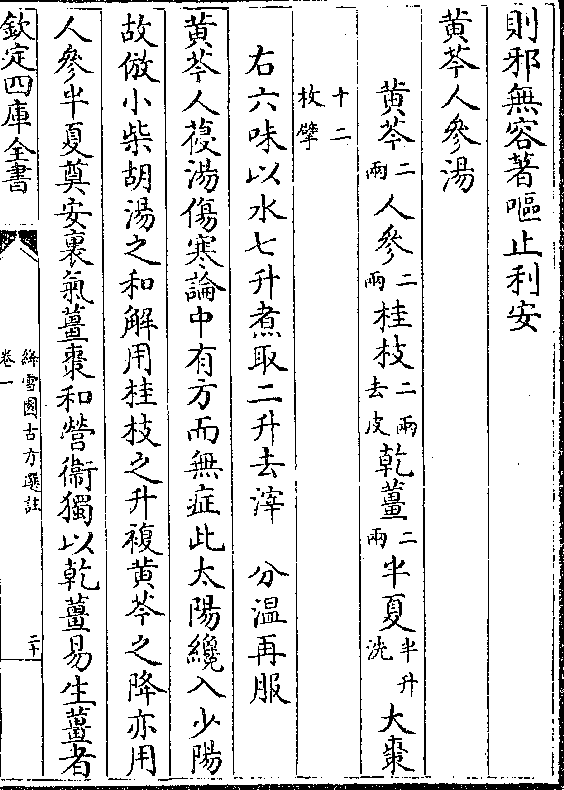 則邪無容著嘔止利安
黄芩人參湯
黄芩二兩人參二兩桂枝二兩去皮乾薑二兩半夏半升洗大棗
十二枚擘
右六味以水七升煮取二升去滓 分温再服
黄芩人葠湯傷寒論中有方而無症此太陽纔入少陽
故倣小柴胡湯之和解用桂枝之升複黄芩之降亦用
人參半夏奠安裏氣薑棗和營衛獨以乾薑易生薑者
欽定四庫全書
絳雪園古方選註
卷一
二十